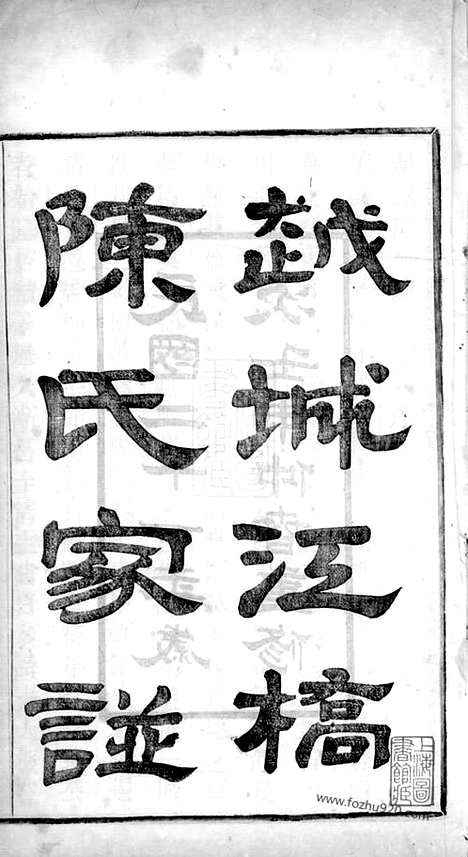 越城江橋
陳氏家諩
上海圖
書館藏
www.fozhu920.com